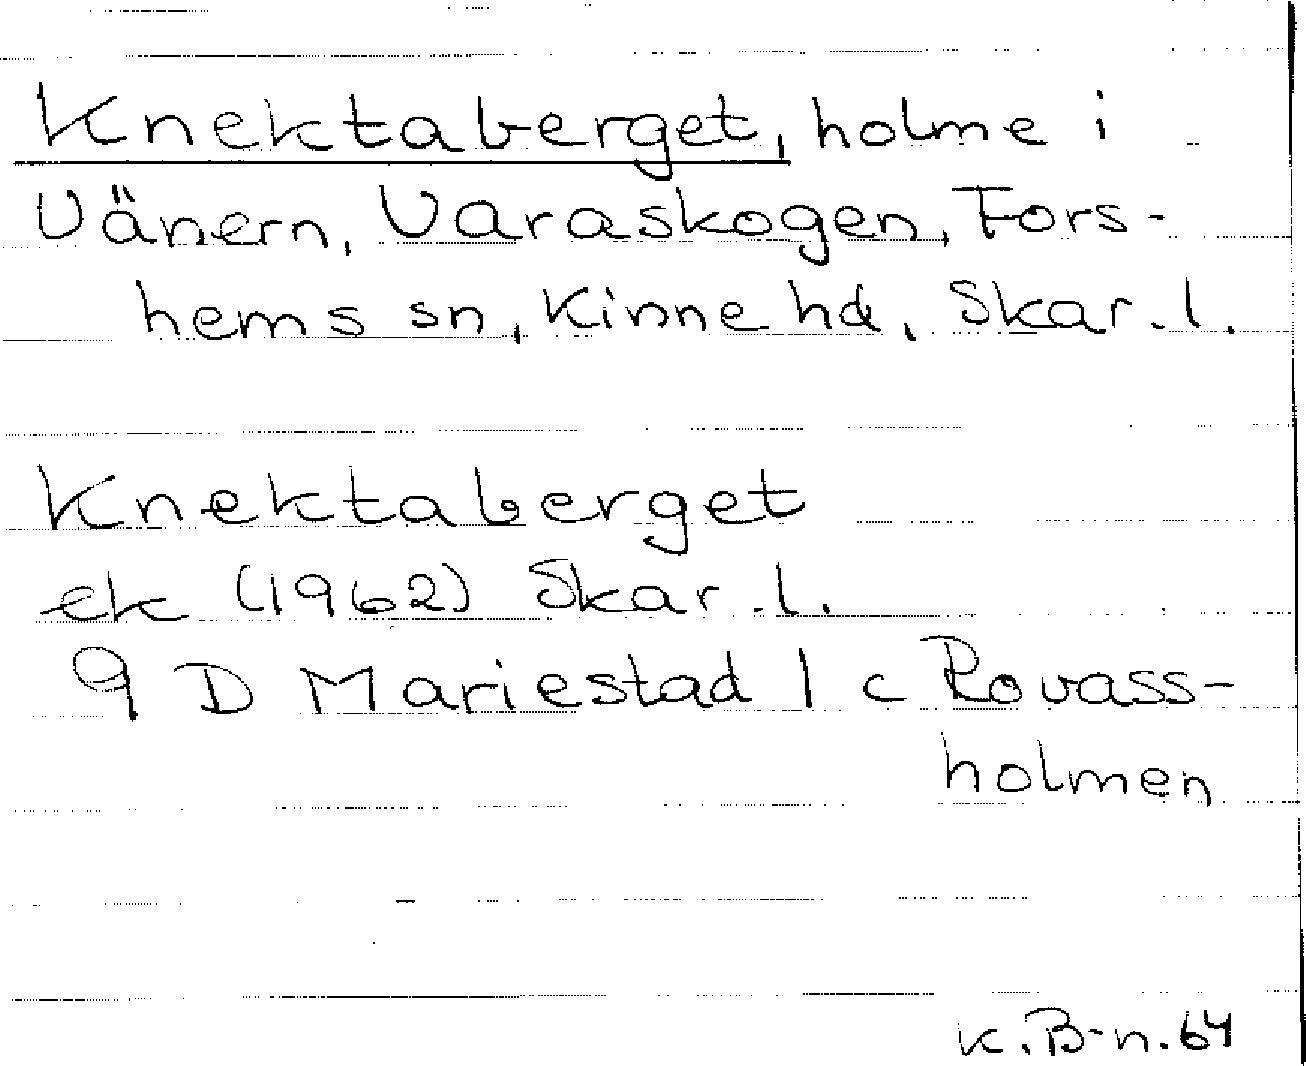 Knektaberget, holme i
Vänern, Varaskogen, Fors-
hems sn, Kinne hd, Skar. l.
Knektaberget
ek (1962) Skar. l.
9 D Mariestad 1 c Rovass-
holmen
K. B-n. 64